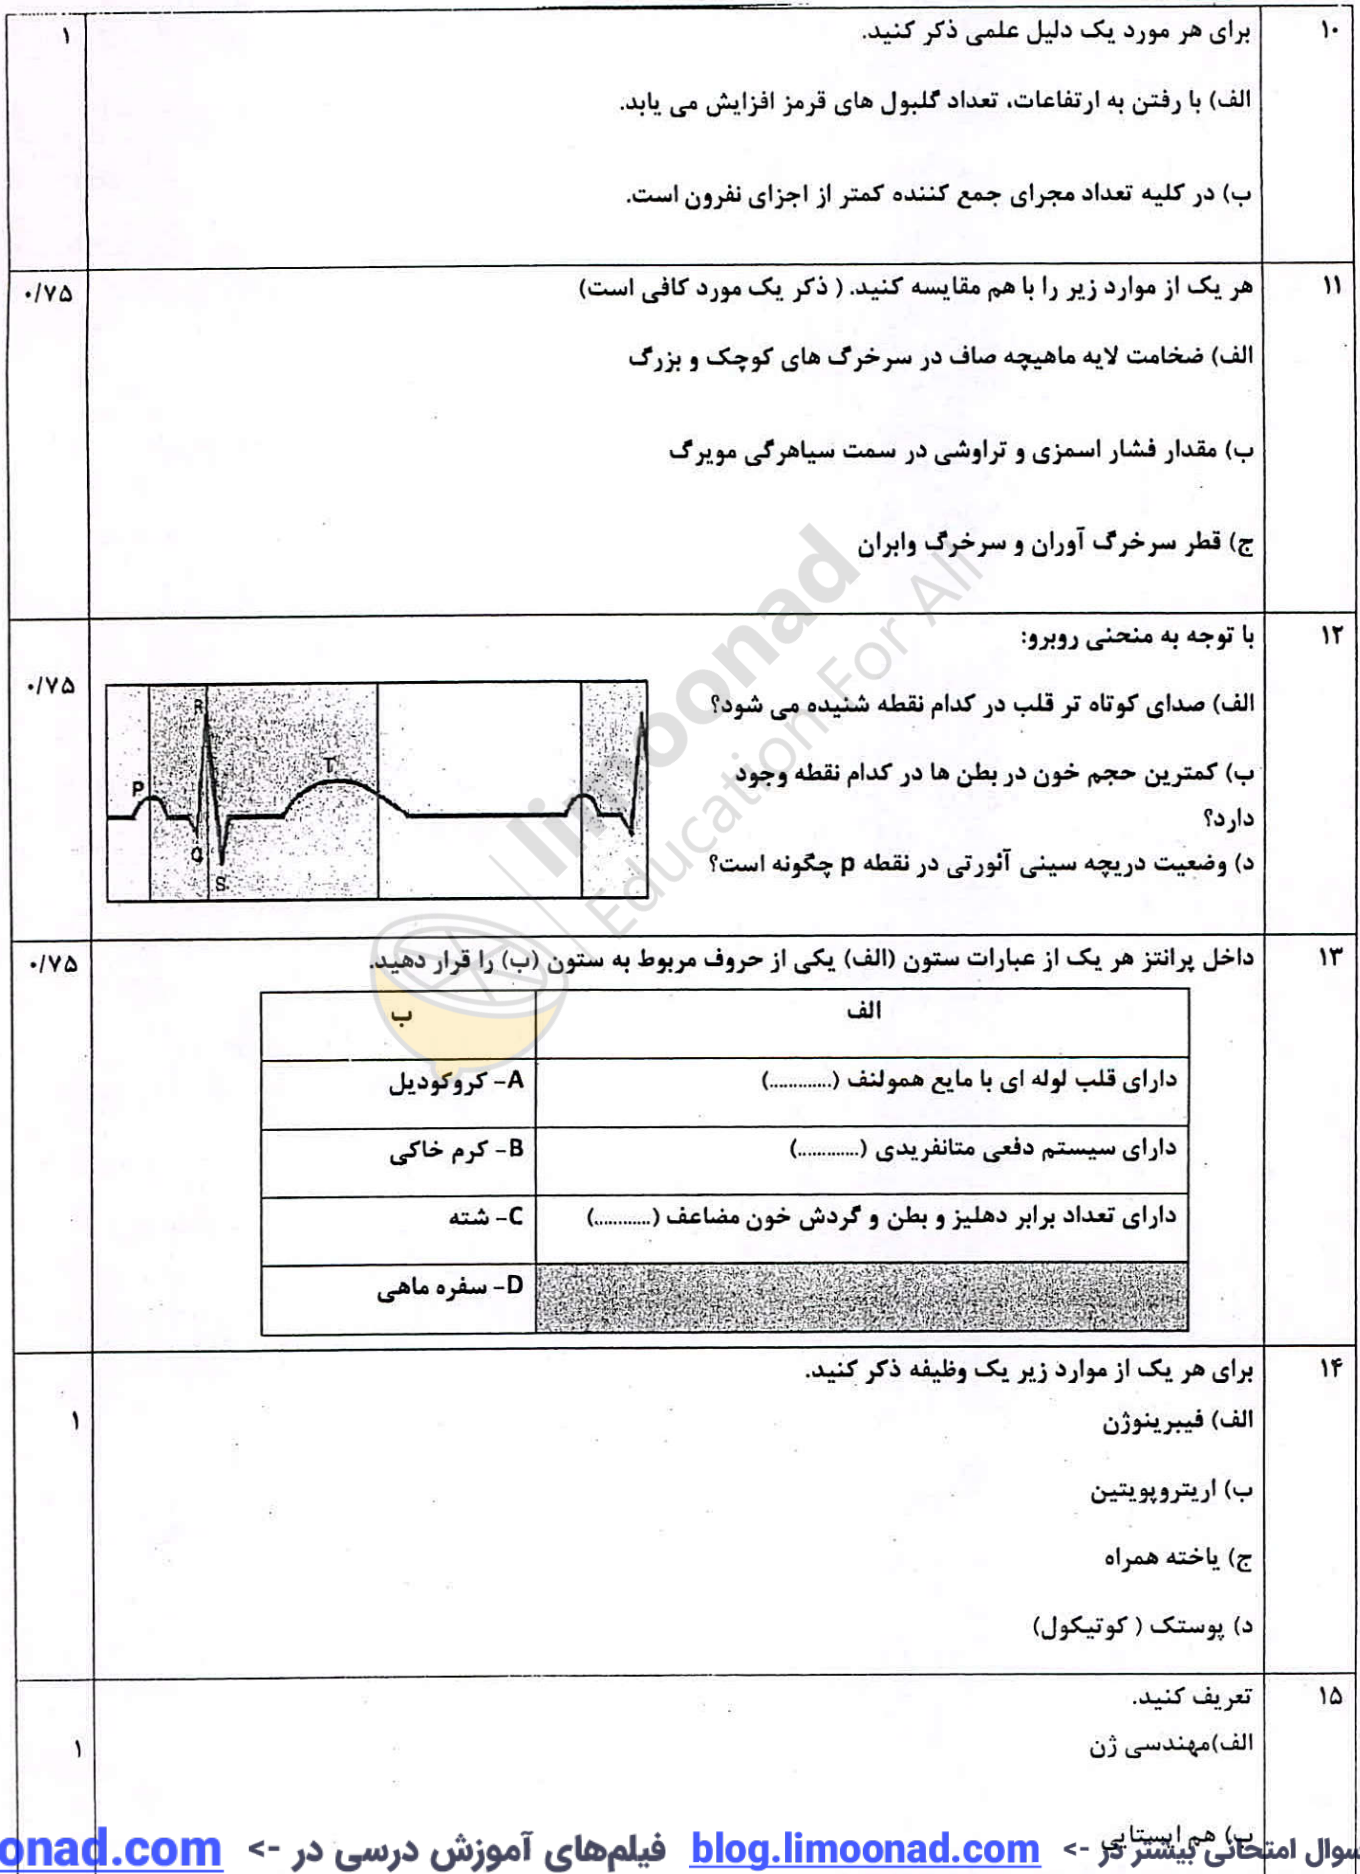 ۱۰
برای هر مورد یک دلیل علمی ذکر کنید.
۱
الف) با رفتن به ارتفاعات، تعداد گلبول های قرمز افزایش می یابد.
ب) در کلیه تعداد مجرای جمع کننده کمتر از اجزای نفرون است.
۱۱
هر یک از موارد زیر را با هم مقایسه کنید. ( ذکر یک مورد کافی است)
۰/۷۵
الف) ضخامت لایه ماهیچه صاف در سرخرگ های کوچک و بزرگ
ب) مقدار فشار اسمزی و تراوشی در سمت سیاهرگی مویرگ
ج) قطر سرخرگ آوران و سرخرگ وابران
۱۲
با توجه به منحنی روبرو:
۰/۷۵
الف) صدای کوتاه تر قلب در کدام نقطه شنیده می شود؟
ب) کمترین حجم خون در بطن ها در کدام نقطه وجود
دارد؟
د) وضعیت دریچه سینی آئورتی در نقطه p چگونه است؟
P
Q
R
S
T
۱۳
داخل پرانتز هر یک از عبارات ستون (الف) یکی از حروف مربوط به ستون (ب) را قرار دهید.
۰/۷۵
الف
ب
دارای قلب لوله ای با مایع همولنف (............)
A- کروکودیل
دارای سیستم دفعی متانفریدی (............)
B- کرم خاکی
دارای تعداد برابر دهلیز و بطن و گردش خون مضاعف (............)
C- شته
D- سفره ماهی
۱۴
برای هر یک از موارد زیر یک وظیفه ذکر کنید.
۱
الف) فیبرینوژن
ب) اریتروپویتین
ج) یاخته همراه
د) پوستک ( کوتیکول)
۱۵
تعریف کنید.
۱
الف)مهندسی ژن
ب) هم ایستایی
limoonad
Education For All
سوال امتحانی بیشتر در -> blog.limoonad.com فیلم‌های آموزش درسی در -> onad.com